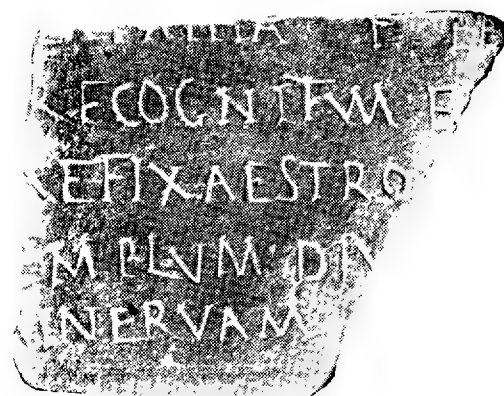 RECOGNITVM E
AEFIXAESTRO
MPLVM·DIV
INERVAM